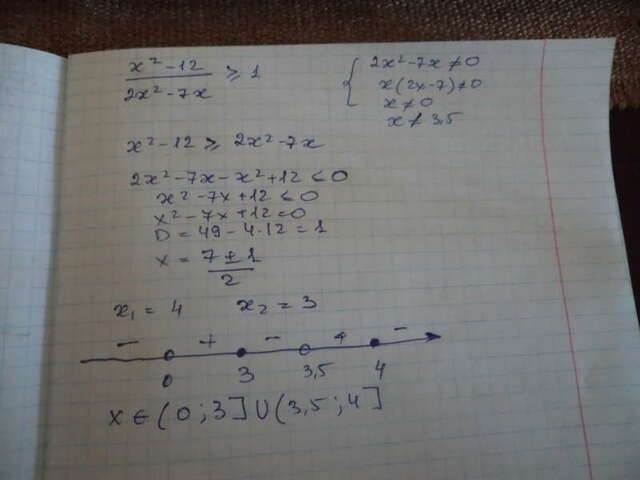 x² - 12 / 2x² - 7x ≥ 1
{ 2x² - 7x ≠ 0
x(2x - 7) ≠ 0
x ≠ 0
x ≠ 3,5
x² - 12 ≥ 2x² - 7x
2x² - 7x - x² + 12 ≤ 0
x² - 7x + 12 ≤ 0
x² - 7x + 12 = 0
D = 49 - 4·12 = 1
x = 7 ± 1 / 2
x₁ = 4 x₂ = 3
- + - + -
0 3 3,5 4
x ∈ (0; 3] ∪ (3,5; 4]